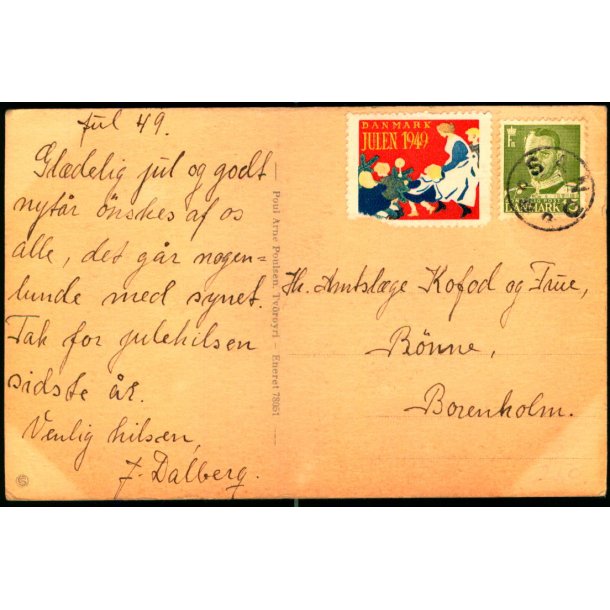 Jul 49.
Glædelig jul og godt
nytår ønskes af os
alle, det går nogen-
lunde med synet.
Tak for julehilsen
sidste år.
Venlig hilsen,
J. Dalberg.
Poul Arne Poulsen, Tvöroyri — Eneret 78051
DANMARK
JULEN 1949
DANMARK
SAND
Hr. Amtslæge Kofod og Frue,
Rønne,
Borenholm.